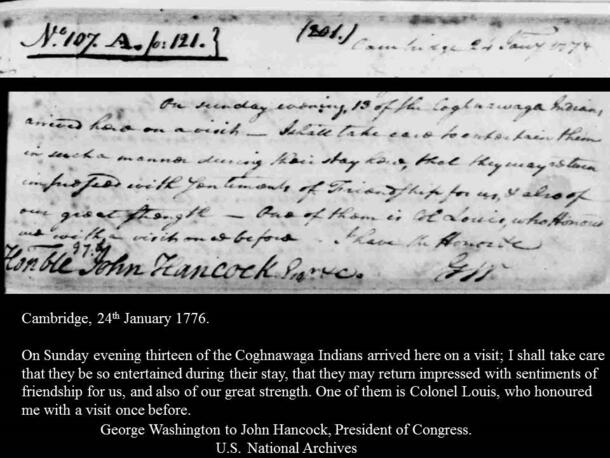 No. 107. A. p: 121.}
(201.)
Cambridge 24 Jany 1776
On sunday evening, 13 of the Coghnawaga Indians,
arrived here on a visit — I shall take care to entertain them
in such a manner during their stay here, that they may return
impressed with Sentiments of Friendship for us, & also of
our great strength — One of them is Col Louis, who Honoured
me with a visit once before — I have the Honor
G W
Honble John Hancock
Cambridge, 24th January 1776.
On Sunday evening thirteen of the Coghnawaga Indians arrived here on a visit; I shall take care
that they be so entertained during their stay, that they may return impressed with sentiments of
friendship for us, and also of our great strength. One of them is Colonel Louis, who honoured
me with a visit once before.
George Washington to John Hancock, President of Congress.
U.S. National Archives